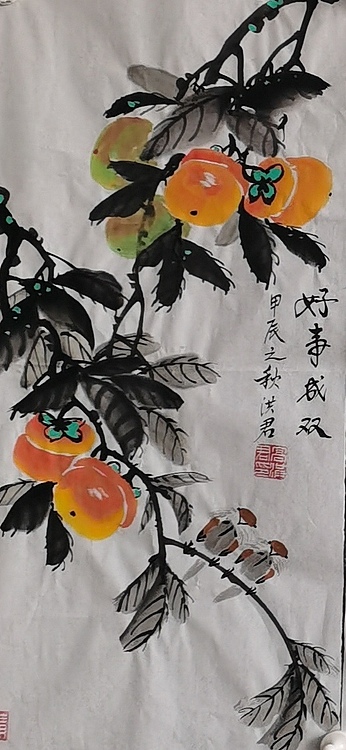 好事成双
甲辰之秋洪君